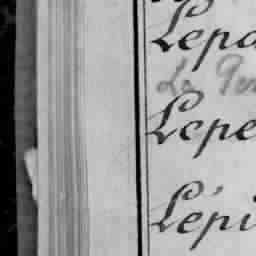 Lepa
Le Per
Lepe
Lépi